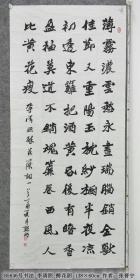 薄霧濃雲愁永晝瑞腦銷金獸
佳節又重陽玉枕紗櫥半夜涼
初透東籬把酒黃昏後有暗香
盈袖莫道不銷魂簾卷西風人
比黃花瘦
李清照醉花陰詞一首
号书法 李清照 醉花阴 138×60cm 作者：张普宁